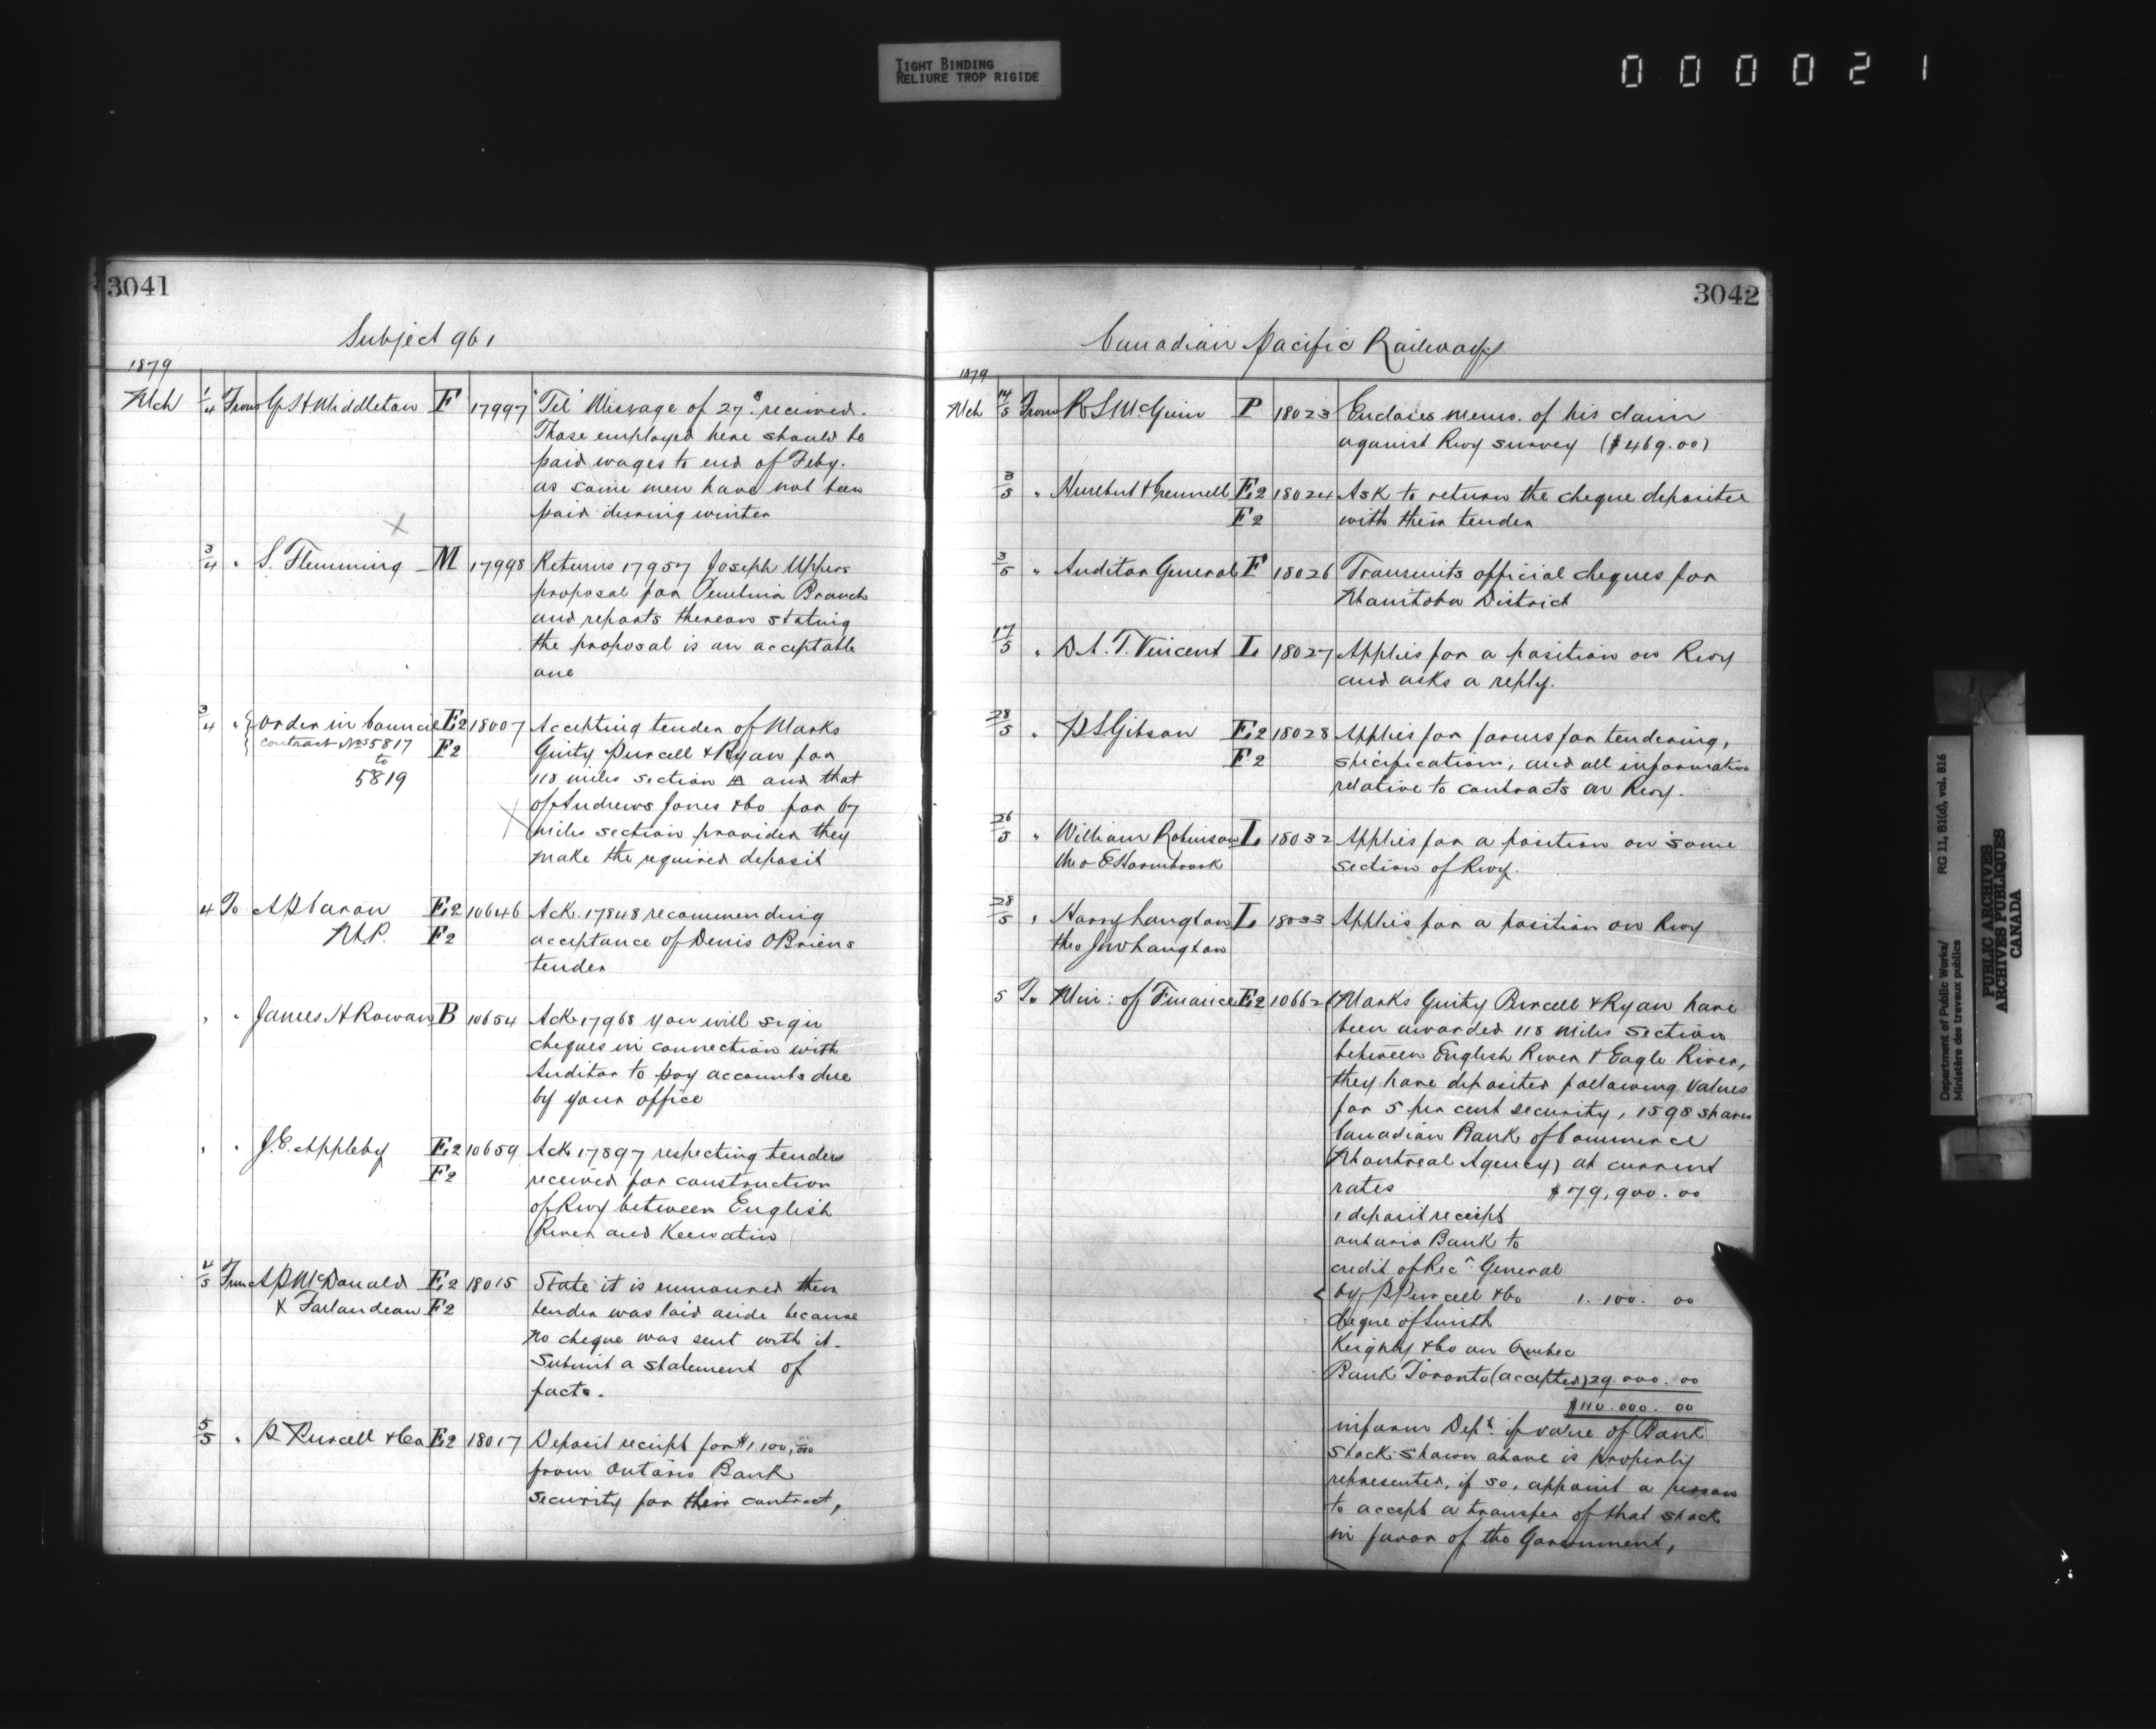 TIGHT BINDING
RELIURE TROP RIGIDE
000021
3041
Subject 961
1879
Mch 1/4 From G S H Middleton F 17997 "Tel" Message of 27th received.
Those employed here should be
paid wages to end of Feby.
as some men have not been
paid during winter
3/4 " S. Flemming M 17998 Returns 17957 Joseph Uppers
proposal for Pembina Branch
and reports thereon stating
the proposal is an acceptable
one
3/4 " Order in Council E2 18007 Accepting tender of Marks
contract Nos 5817 F2 Ginty Purcell & Ryan for
to
5819 118 miles section A and that
of Andrews Jones & Co for 67
miles section provided they
make the required deposit
4 To A P Caron E2 10646 Ack. 17848 recommending
M.P. F2 acceptance of Denis O'Briens
tender
" " James H Rowan B 10654 Ack 17968 you will sign
cheques in connection with
Auditor to pay accounts due
by your office
" " J. E. Appleby E2 10659 Ack 17897 respecting tenders
F2 received for construction
of Rwy between English
River and Keewatin
4/5 From A P McDonald E2 18015 State it is rumoured their
F2 tender was laid aside because
no cheque was sent with it.
Submit a statement of
facts.
5/5 " P Purcell & Co E2 18017 Deposit receipt for $1.100,00
from Ontario Bank
security for their contract,
3042
Canadian Pacific Railway
1879
Mch 14/5 From R S McGinn P 18023 Encloses memo. of his claim
against Rwy survey ($469.00)
3/5 " Hurlbut & Crennell E2 18024 Ask to return the cheque deposited
F2 with their tender
3/5 " Auditor General F 18026 Transmits official cheques for
Manitoba District
17/5 " D A. T. Vincent L 18027 Applies for a position on Rwy
and asks a reply.
28/5 " P S Gibson E2 18028 Applies for forms for tendering,
F2 specifications, and all information
relative to contracts on Rwy.
26/5 " William Robinson L 18032 Applies for a position on some
thro E Hornibrook section of Rwy.
28/5 " Harry Langton L 18033 Applies for a position on Rwy
thro Jno Langton
5 To Min: of Finance E2 10662 Marks Ginty Purcell & Ryan have
been awarded 118 miles section
between English River & Eagle River,
they have deposited following values
for 5 per cent security, 1598 shares
Canadian Bank of Commerce
(Montreal Agency) at current
rates $79,900.00
1 deposit receipt
Ontario Bank to
credit of Recr General
by P Purcell & Co 1.100. 00
cheque of Smith
Keighly & Co on Quebec
Bank Toronto (accepted) 29.000.00
$110.000.00
inform Dept if value of Bank
stock shown above is properly
represented, if so, appoint a person
to accept a transfer of that stock
in favor of the Government,
Department of Public Works/
Ministère des travaux publics
RG 11, B1(d), vol. 816
PUBLIC ARCHIVES
ARCHIVES PUBLIQUES
CANADA